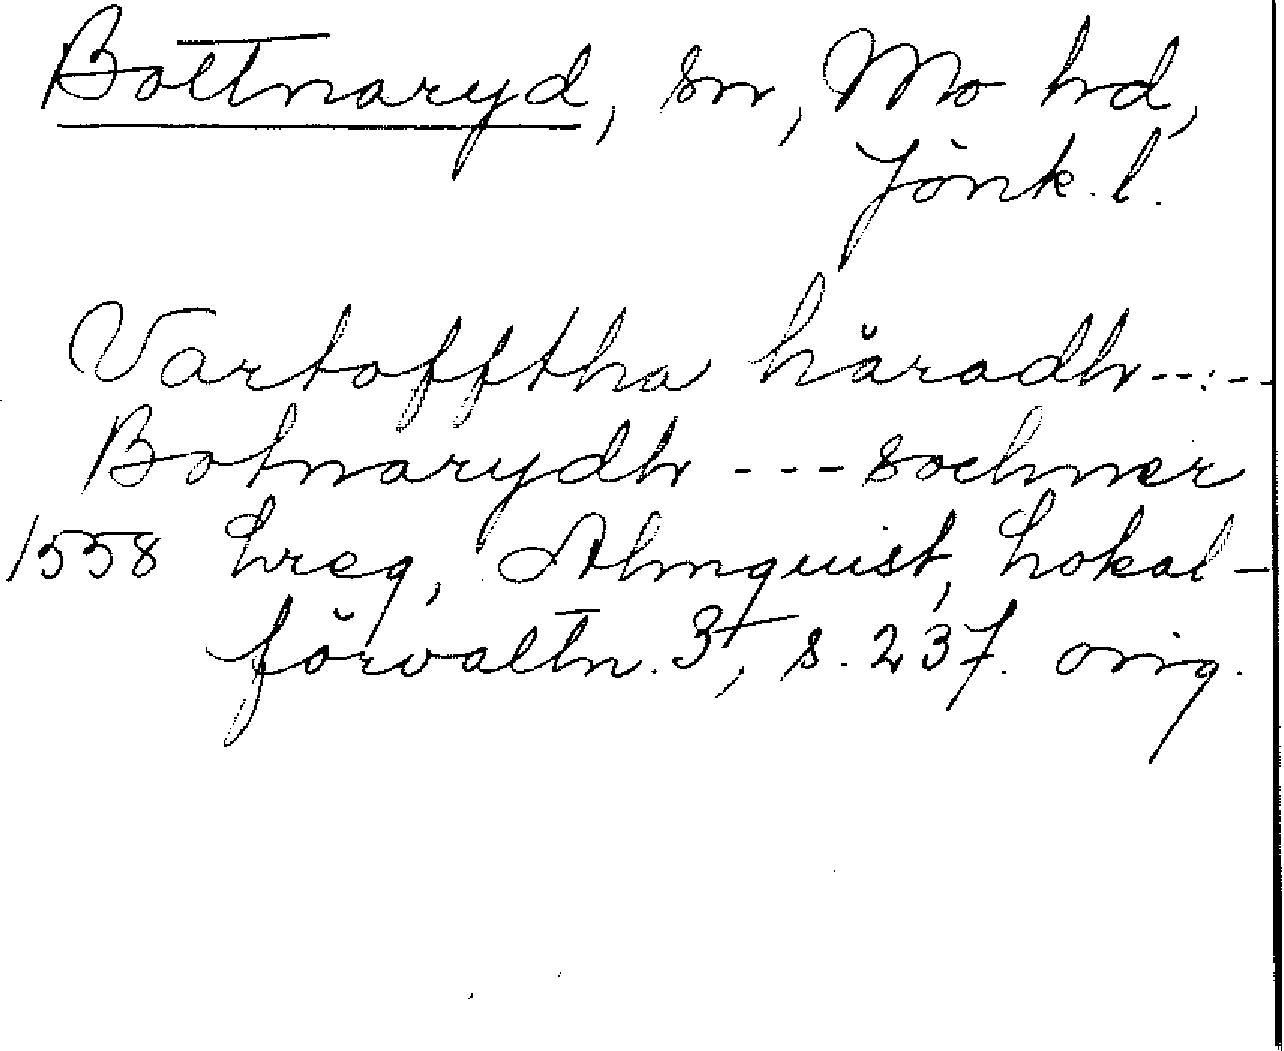 Bottnaryd, sn, Mo hd,
Jönk. l.
Vartofftha häradh -----
Botnarydh --- sochner
1558 Lreg, Almquist, Lokal-
förvaltn. 3⁺, s. 237. orig.